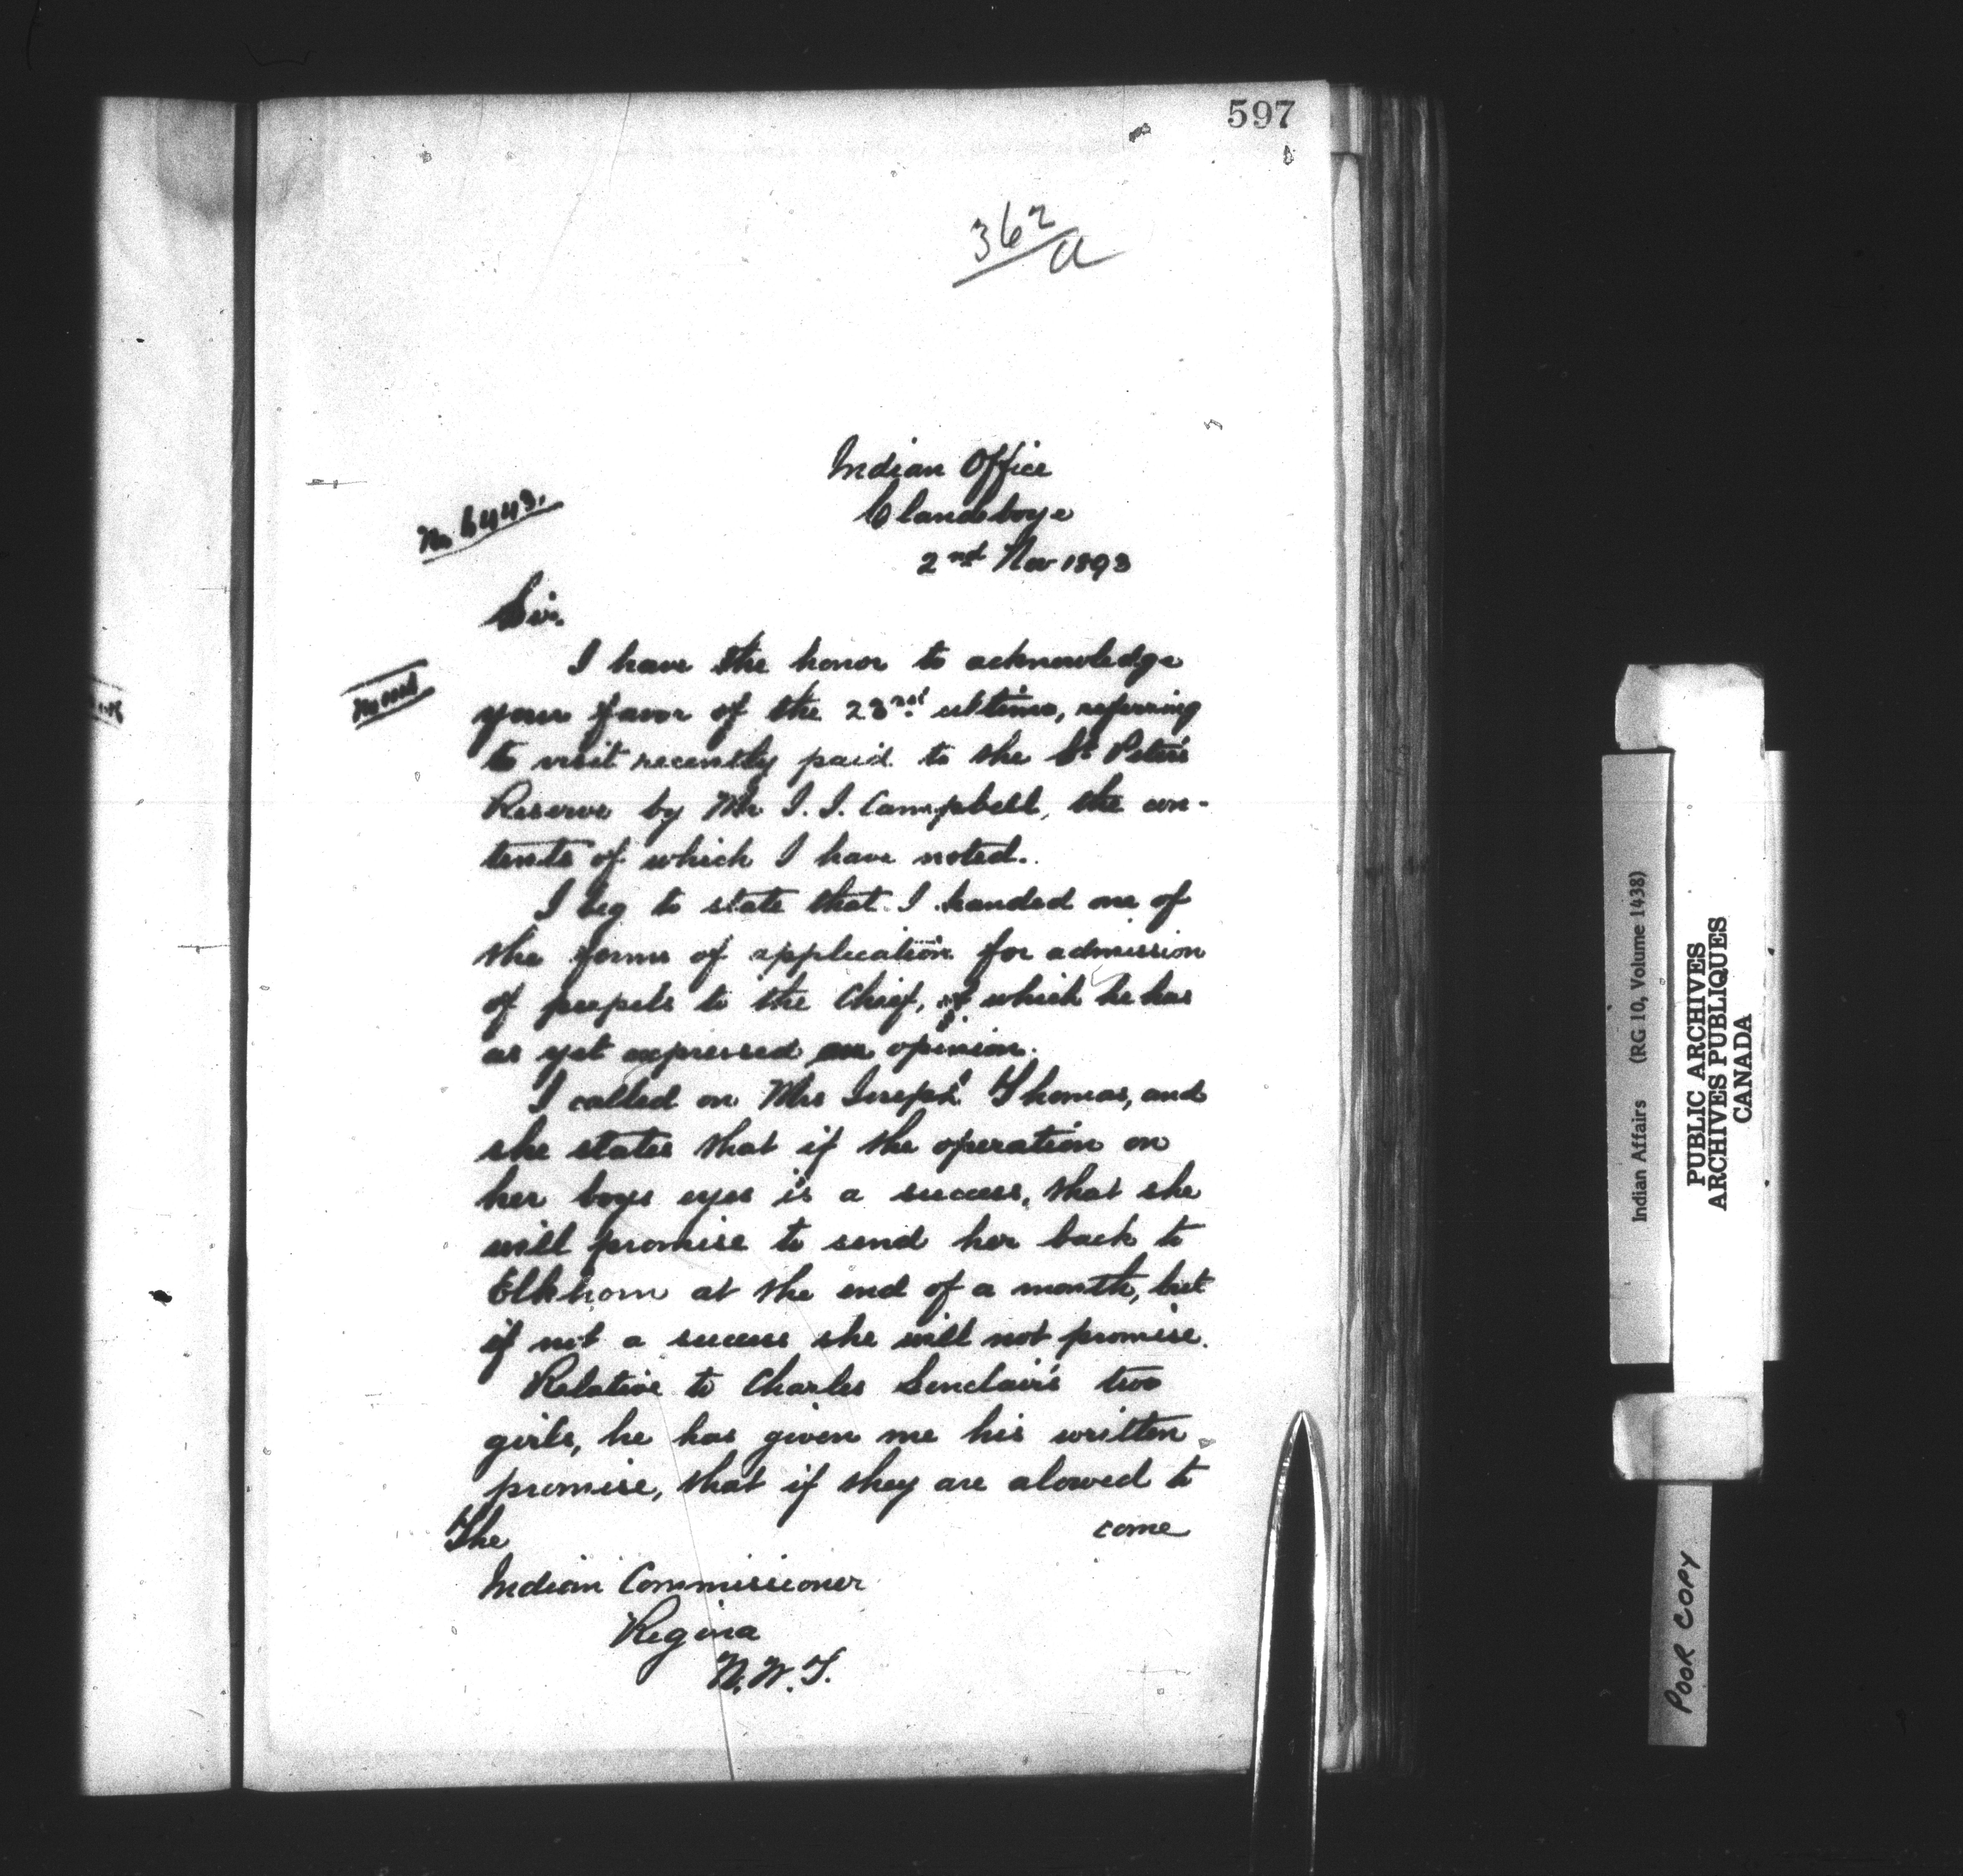 597
362/a
Indian Office
Clandeboye
2nd Nov 1893
No 6443.
Sir.
I have the honor to acknowledge
your favor of the 23rd ultimo, referring
to visit recently paid to the St Peter's
Reserve by Mr J. J. Campbell, the con-
tents of which I have noted.
I beg to state that I handed one of
the forms of application for admission
of pupils to the Chief, of which he has
as yet expressed no opinion.
I called on Mrs Joseph Thomas, and
she states that if the operation on
her boys eyes is a success, that she
will promise to send her back to
Elkhorn at the end of a month, but
if not a success she will not promise.
Relative to Charles Sinclair's two
girls, he has given me his written
promise, that if they are alowed to
come
The
Indian Commissioner
Regina
N.W.T.
Indian Affairs (RG 10, Volume 1438)
PUBLIC ARCHIVES
ARCHIVES PUBLIQUES
CANADA
POOR COPY